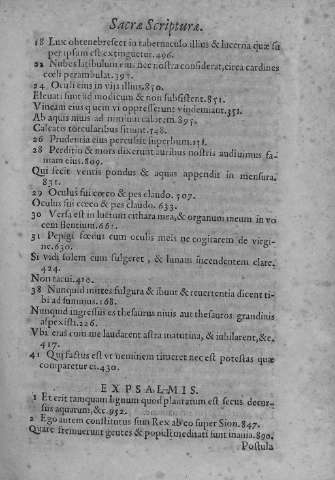 Sacræ Scripturæ.
18 Lux obtenebrescet in tabernaculo illius & lucerna quæ su
per ipsam est extinguetur. 496.
22 Nubes latibulum eius nec nostra considerat, circa cardines
cœli perambulat. 392.
24 Oculi eius in vijs illius. 850.
Eleuati sunt ad modicum & non subsistent. 851.
Vineam eius quem vi oppresserunt vindemiant. 351.
Ab aquis niuis ad nimium calorem. 895.
Calcato torcularibus sitiunt. 148.
26 Prudentia eius percussit superbum.
28 Perditio & mors dixerunt auribus nostris audiuimus fa-
mam eius. 809.
Qui fecit ventis pondus & aquas appendit in mensura.
831.
29 Oculus fui cœco & pes claudo. 507.
Oculus fui cœco & pes claudo. 633.
30 Versa est in luctum cithara mea, & organum meum in vo
cem flentium. 661.
31 Pepigi fœdus cum oculis meis ne cogitarem de virgi-
ne. 630.
Si vidi solem cum fulgeret, & lunam incendentem clare.
424.
Non tacui. 410.
38 Nunquid mittes fulgura & ibunt & reuertentia dicent ti-
bi adsumus. 168.
Nunquid ingressus es thesauros niuis aut thesauros grandinis
aspexisti. 226.
Vbi eras cum me laudarent astra matutina, & iubilarent, &c.
417.
41 Qui factus est vt neminem timeret nec est potestas quæ
comparetur ei. 430.
EX PSALMIS.
1 Et erit tamquam lignum quod plantatum est secus decur-
sus aquarum, &c. 952.
2 Ego autem constitutus sum Rex ab eo super Sion. 847.
Quare fremuerunt gentes & populi meditati sunt inania. 890.
Postula